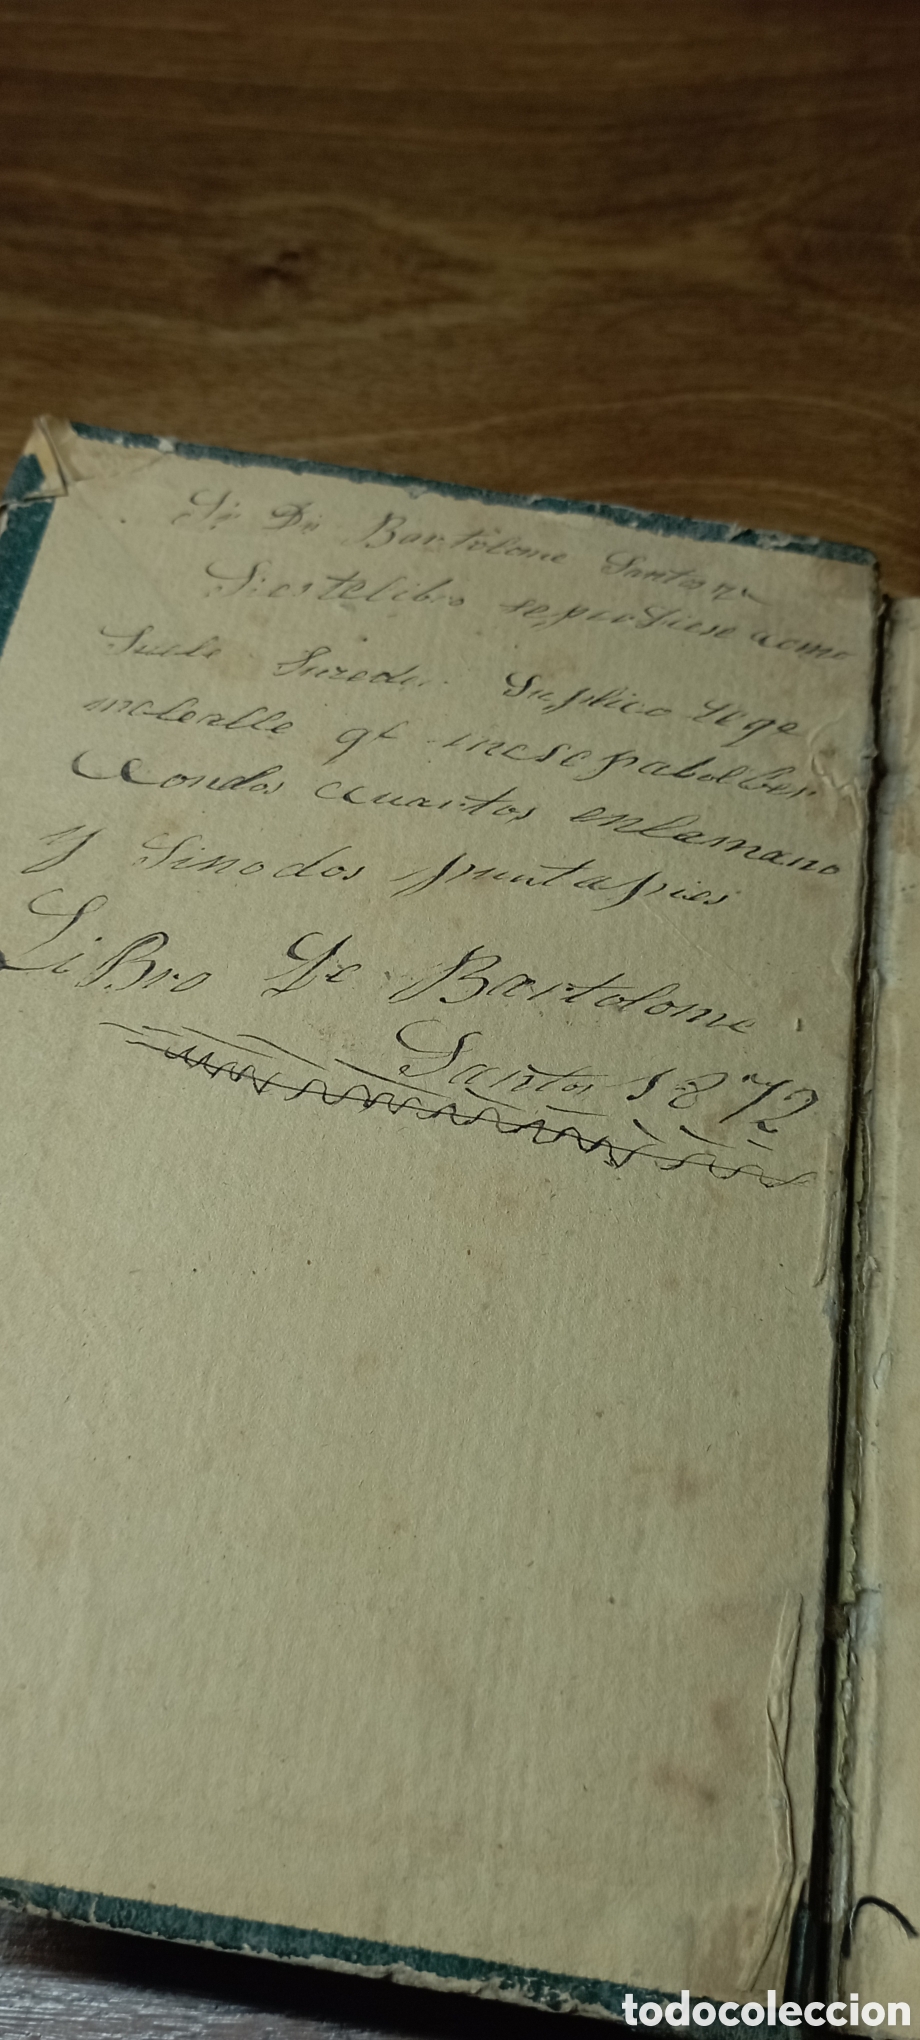 Bartolome Santos
Si estelibro seperdiese como
Suele Suzeder Suplico alqe
qe mesepabolber
condos cuartos enlamano
y Sinodos puntapies
LiBro De Bartolome
Santos 1872
todocoleccion